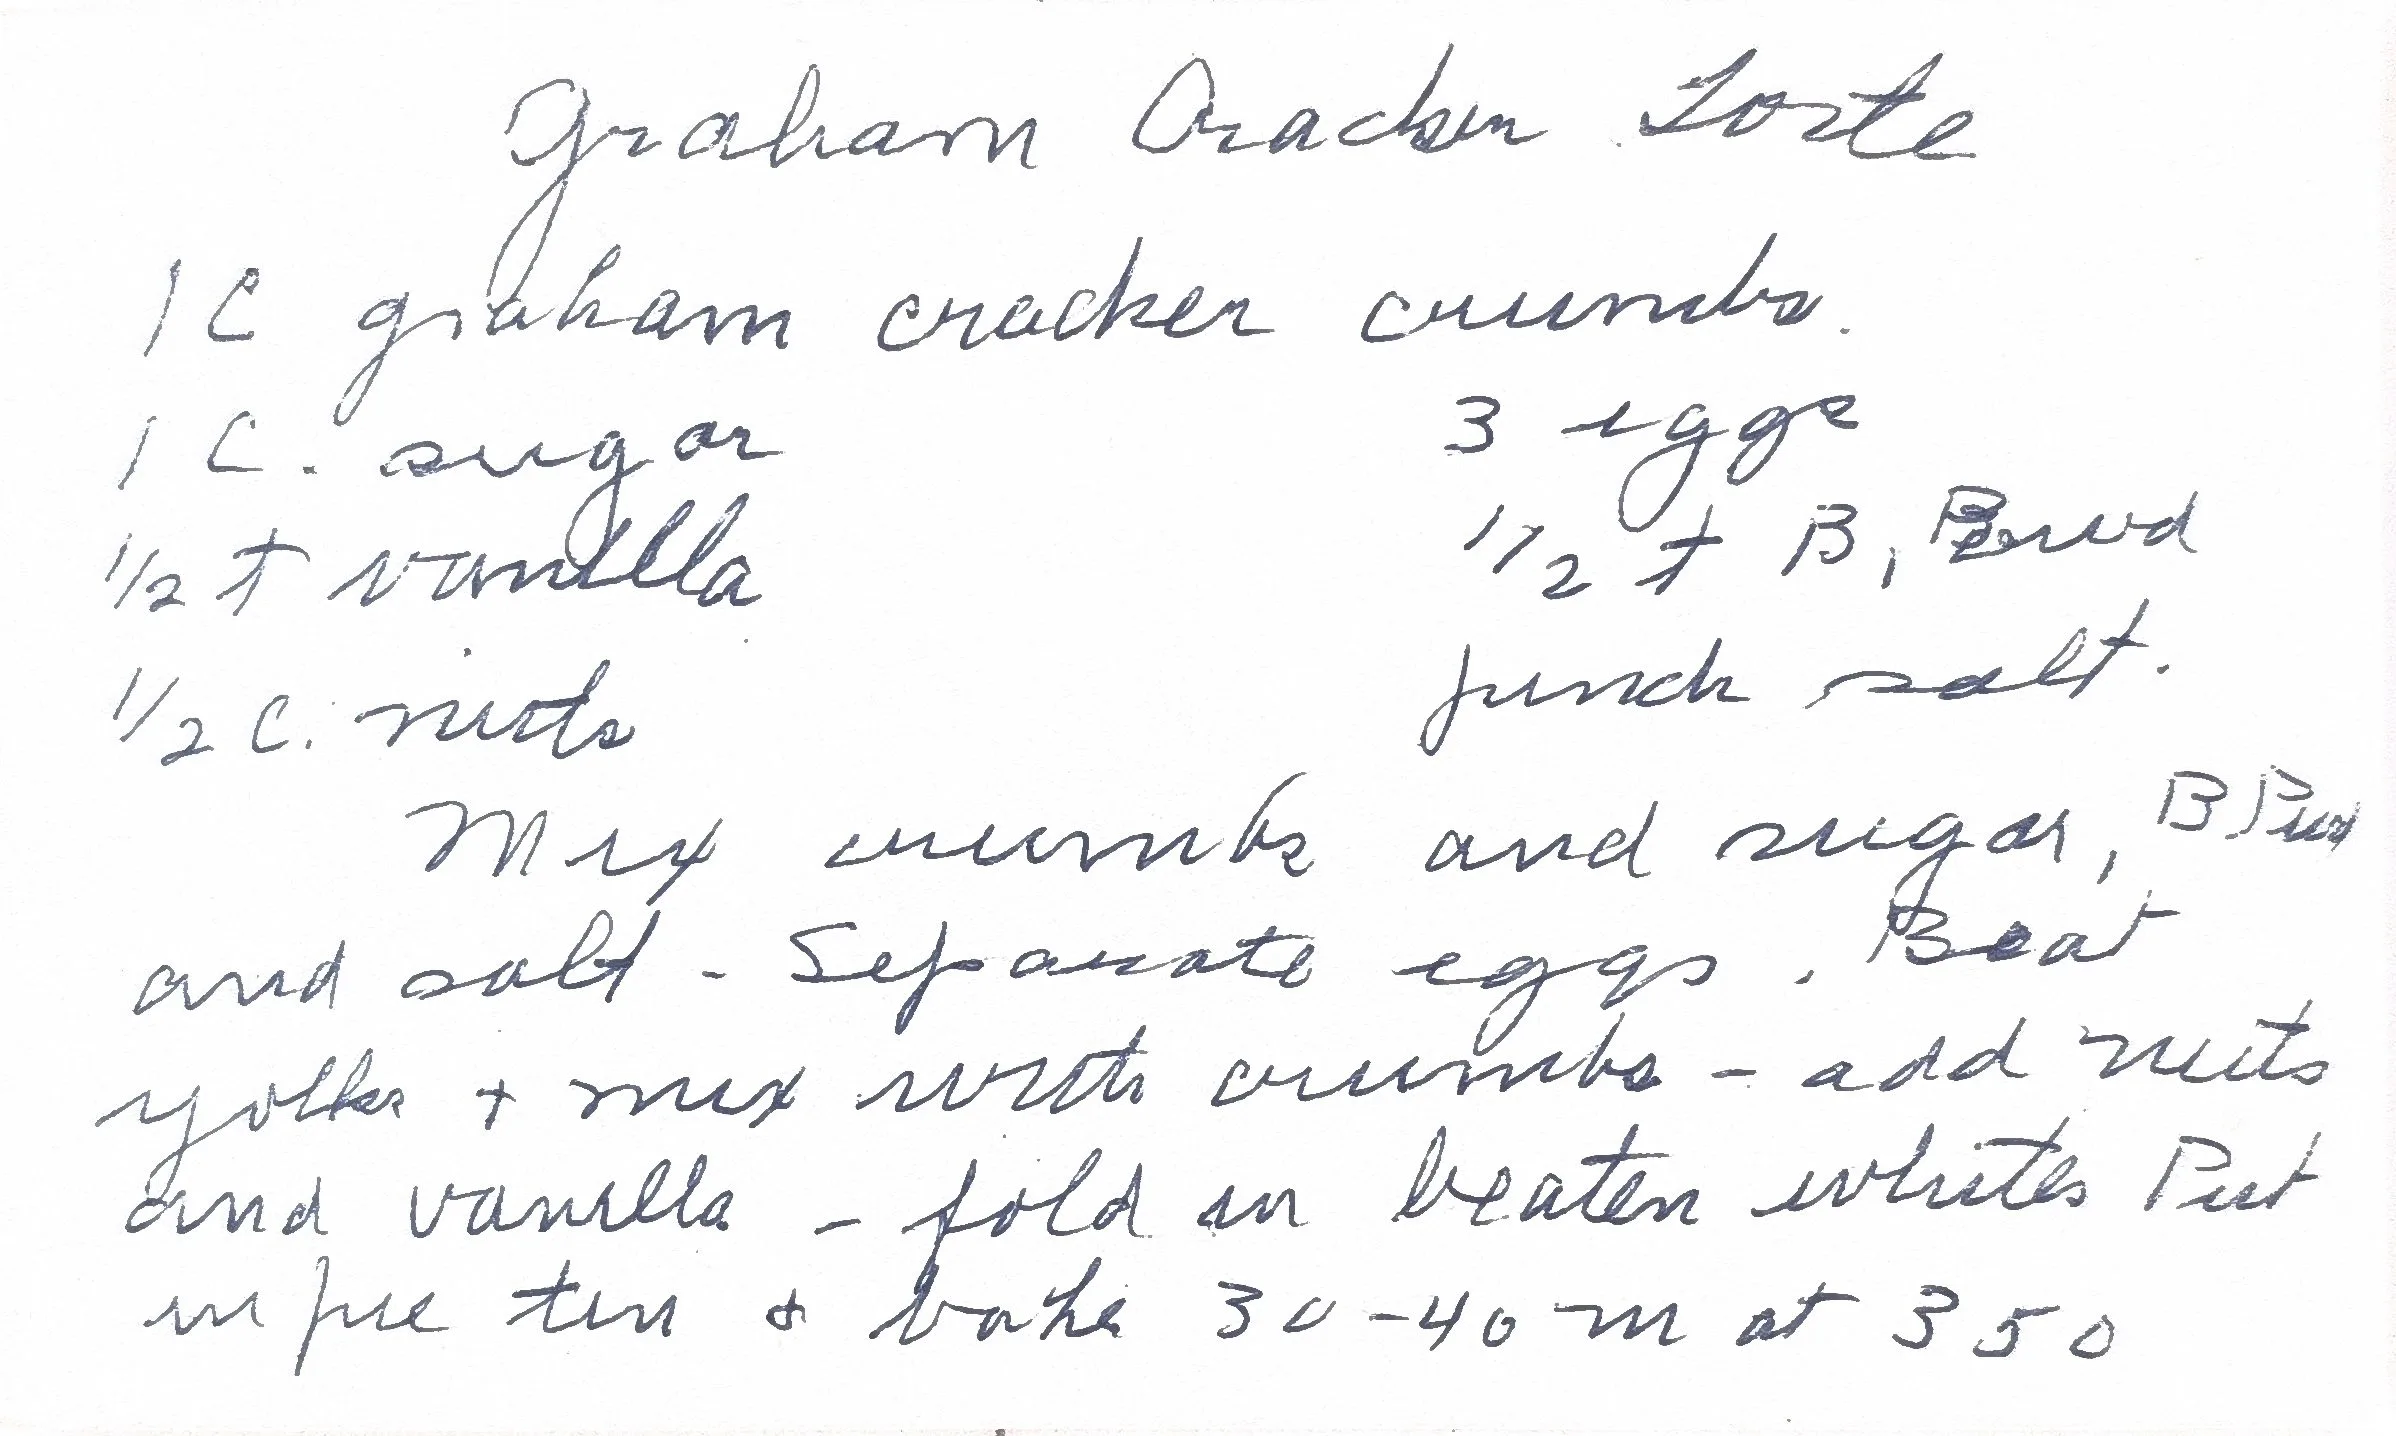 Graham Cracker Torte
1 C graham cracker crumbs.
1 C. sugar 3 eggs
1/2 t vanilla 1/2 t B. Powd
1/2 C. nuts pinch salt.
Mix crumbs and sugar, B Pwd
and salt - Separate eggs. Beat
yolks + mix with crumbs - add nuts
and vanilla - fold in beaten whites Put
in pie tin & bake 30-40 m at 350